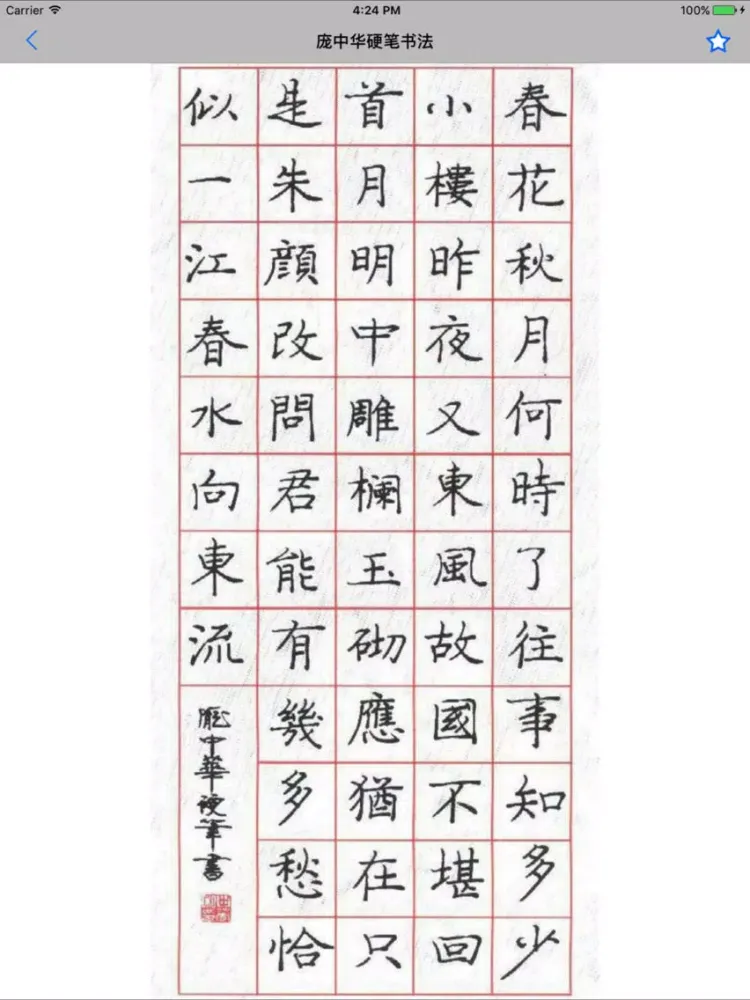 Carrier 4:24 PM 100%
庞中华硬笔书法
春花秋月何時了往事知多少
小樓昨夜又東風故國不堪回
首月明中雕欄玉砌應猶在只
是朱顔改問君能有幾多愁恰
似一江春水向東流
龐中華硬筆書